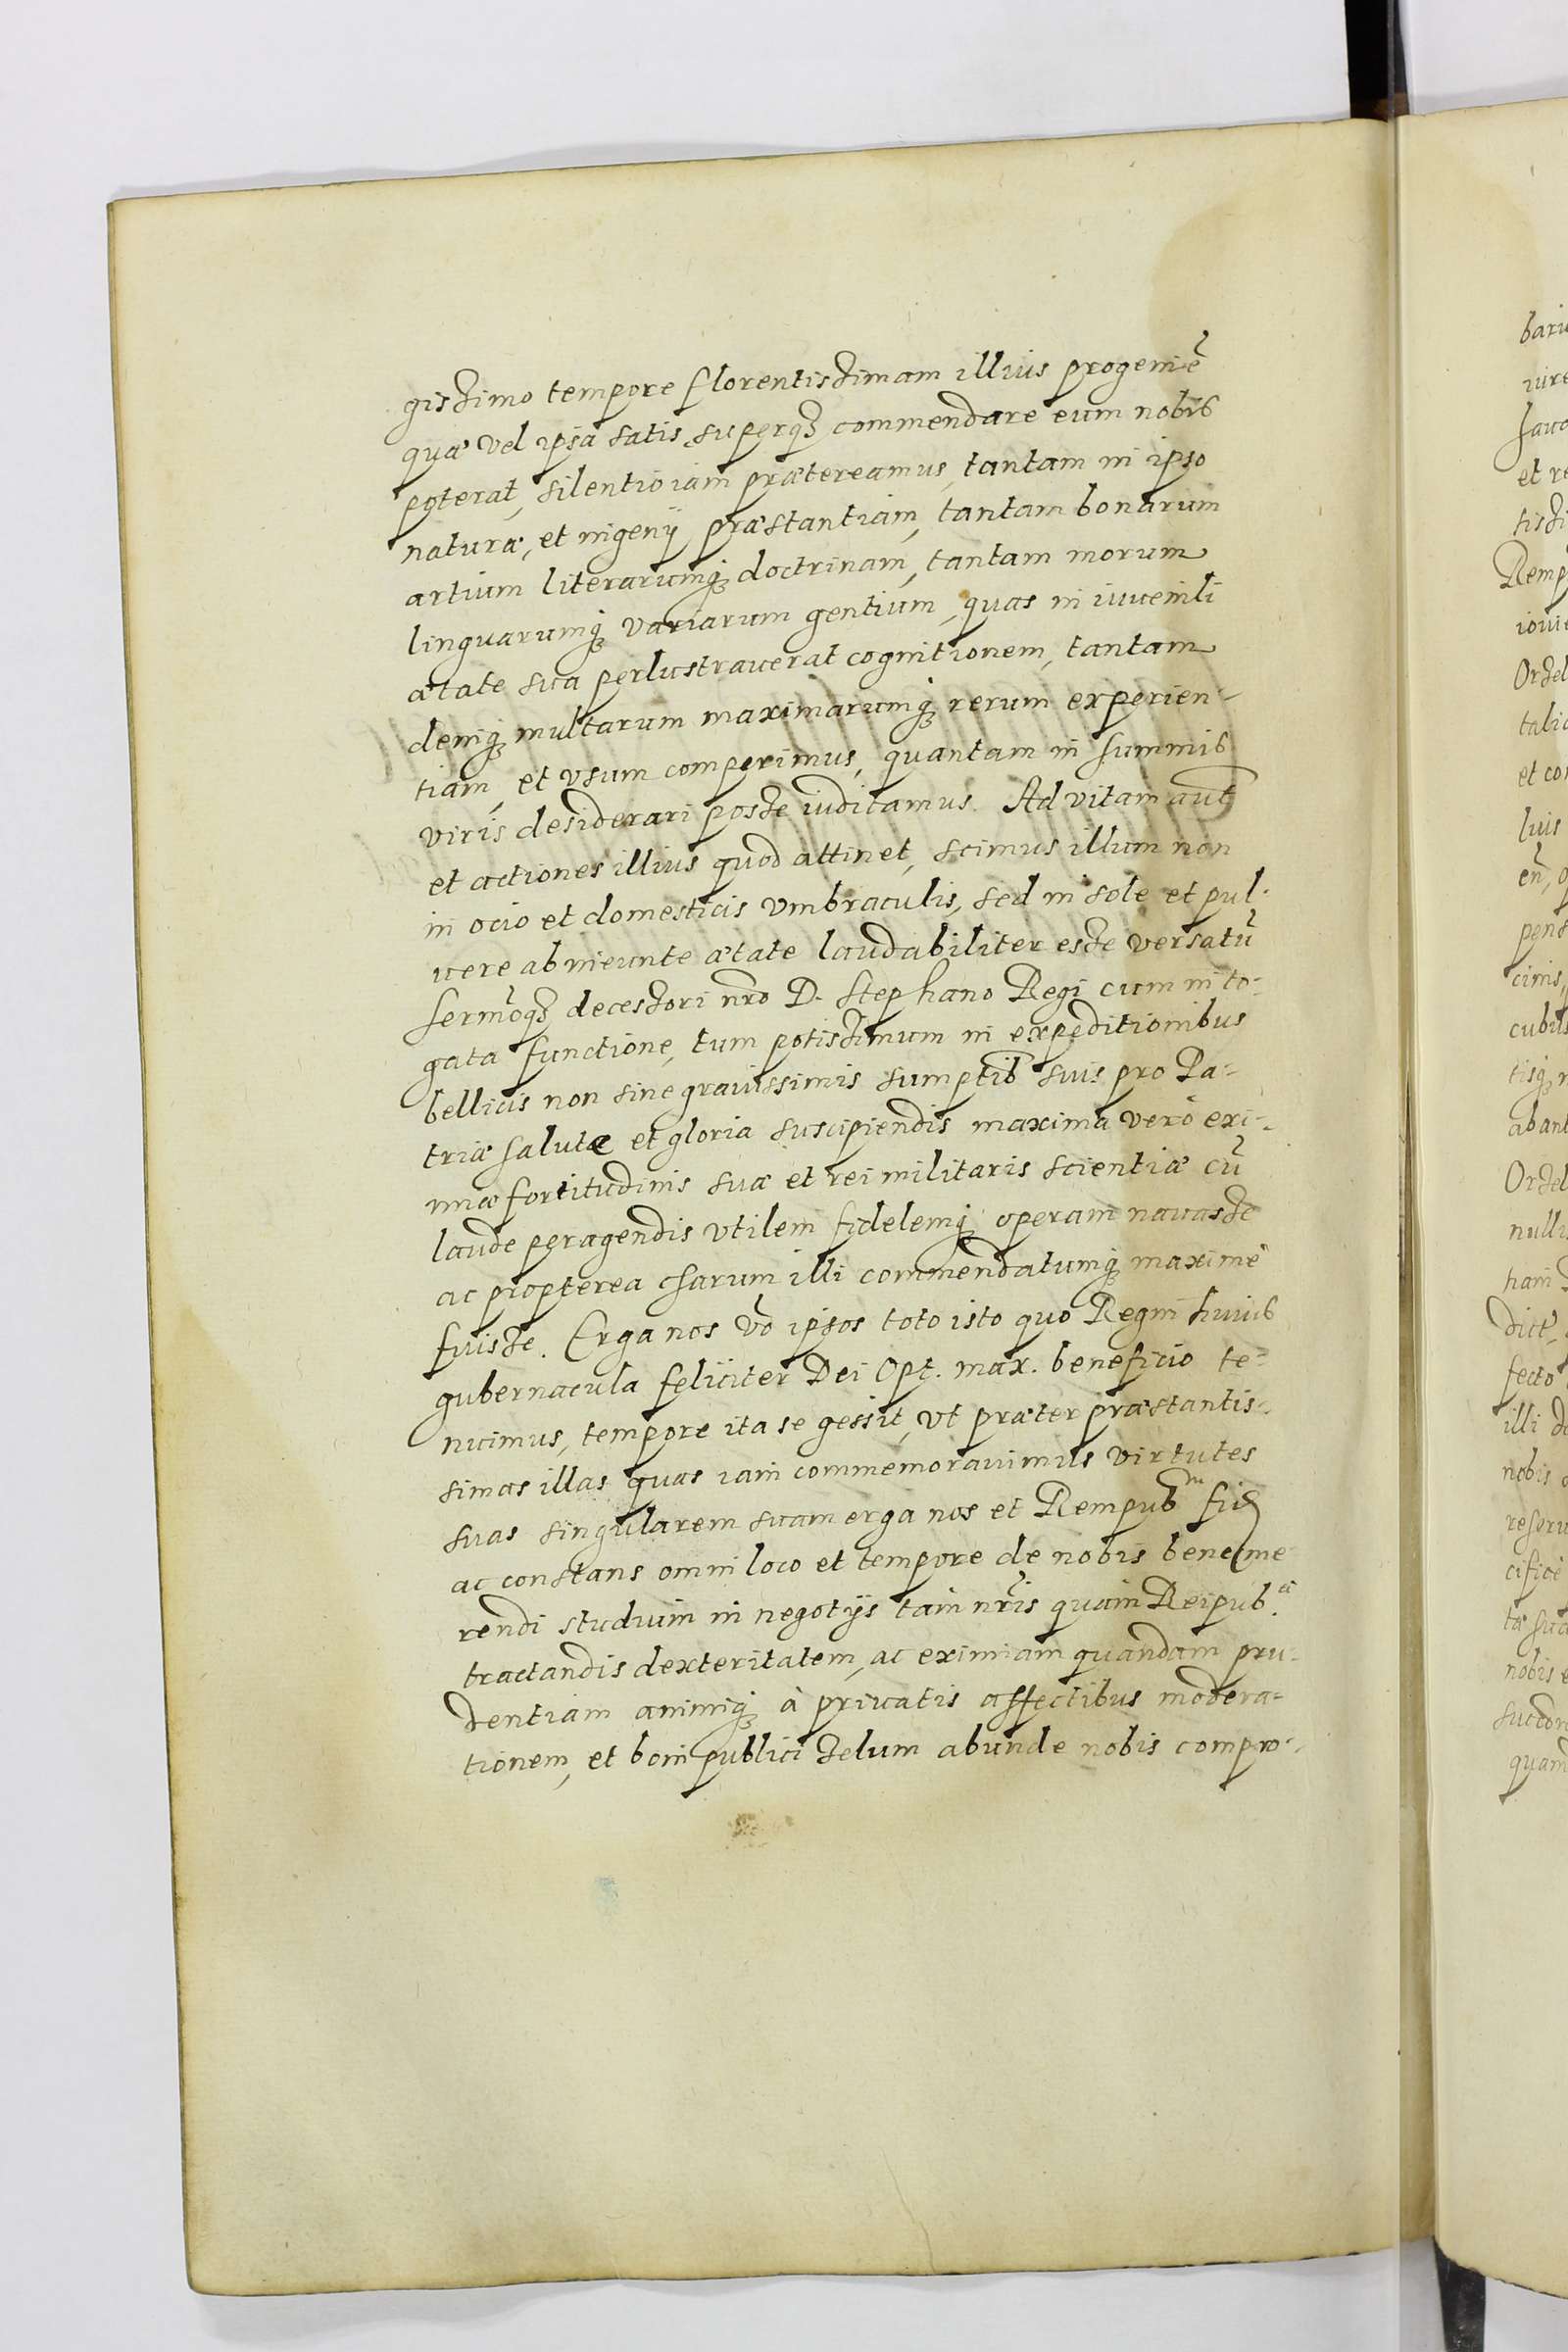 gissimo tempore florentissimam illius progeniē
quæ vel ipsa satis superq3 commendare eum nobis
poterat, silentio iam prætereamus, tantam in ipso
naturæ, et ingenij præstantiam, tantam bonarum
artium literarumq3 doctrinam, tantam morum
linguarumq3 variarum gentium, quas in iuvenili
ætate sua perlustraverat cognitionem, tantam
deniq3 multarum maximarumq3 rerum experien-
tiam, et vsum comperimus, quantam in summis
viris desiderari posse iudicamus. Ad vitam aūt
et actiones illius quod attinet, scimus illum non
in ocio et domesticis vmbraculis, sed in sole et pul-
vere ab ineunte ætate laudabiliter esse versatū
sermōq3 decessori nrō D. Stephano Regi cum in to-
gata functione, tum potissimum in expeditionibus
bellicis non sine gravissimis sumptib suis pro Pa-
triæ salute et gloria suscipiendis maxima verò exi-
miæ fortitudinis suæ et rei militaris scientiæ cū
laude peragendis vtilem fidelemq3 operam navasse
ac propterea charum illi commendatumq3 maximè
fuisse. Erga nos vō ipsos toto isto quo Regni huius
gubernacula feliciter Dei Opt. max. beneficio te-
nuimus, tempore ita se gessit, vt præter præstantis-
simas illas quas iam commemoravimus virtutes
suas singularem suam erga nos et Rempub.m fid
ac constans omni loco et tempore de nobis bene me
rendi studium in negotijs tam nrīs quam Reipub.
tractandis dexteritatem, ac eximiam quandam pru-
dentiam animiq3 à privatis affectibus modera-
tionem, et boni publici zelum abunde nobis compro-
bari
iure
et re
tissi
Remp
Orzel
talia
et con
luis
pend
cimis,
cubi
tisq3
ab ant
Orzel
nulli
tiam
fecto
illi
nobis
reserv
cifice
nobis
quam